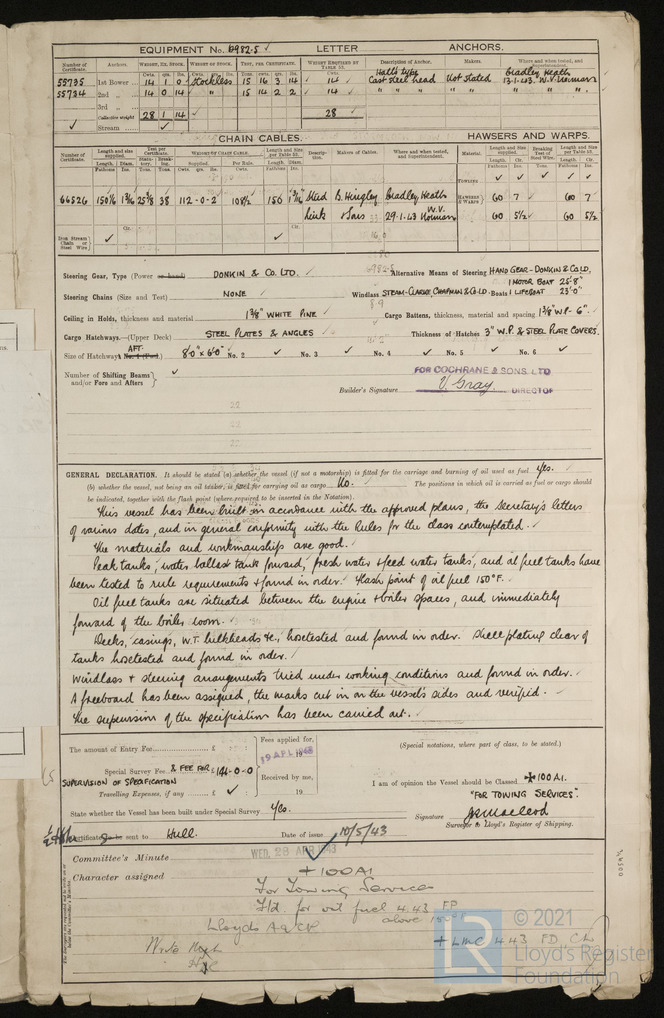 EQUIPMENT No. 6982.5 ✓ LETTER ANCHORS.
Number of Certificate. Anchors. WEIGHT, EX. STOCK. WEIGHT OF STOCK. TEST, PER CERTIFICATE. WEIGHT REQUIRED BY TABLE 53. Description of Anchor. Makers. Where and when tested, and Superintendent.
Cwts. qrs. lbs.
55735 1st Bower 14 1 0 Stockless 15 16 3 14 14 Halls type Cast steel head Not stated Bradley Heath 13.1.43. W.V. Norman
55734 2nd „ 14 0 14 „ 15 14 2 2 14 „ „ „ „
3rd „
Collective weight 28 1 14 28
Stream
CHAIN CABLES. HAWSERS AND WARPS.
Number of Certificate. Length and size supplied. Test per Certificate. WEIGHT OF CHAIN CABLE. Length and Size per Table 53. Description. Makers of Cables. Where and when tested, and Superintendent. Material. Length and Size supplied. Breaking Test of Steel Wire. Length and Size per Table 53.
Length. Diam. Supplied. Per Rule. Length. Diam. Length. Cir. Length. Cir.
Fathoms Ins. Tons. Tons. Cwts. qrs. lbs. Cwts. Fathoms Ins. Fathoms Ins. Tons. Fathoms Ins.
TOWLINE
66526 150 1/6 1 3/16 25 3/8 38 112-0-2 108 1/2 150 1 3/16 Stud B. Hingley Bradley Heath HAWSERS & WARPS 60 7 60 7
Link & Sons 29.1.43 W.V. Norman 60 5 1/2 60 5 1/2
Iron Stream Chain or Steel Wire
Steering Gear, Type (Power or hand) DONKIN & CO. LTD. Alternative Means of Steering HAND GEAR - DONKIN & CO. LD.
Steering Chains (Size and Test) NONE Windlass STEAM-CLARKE, CHAPMAN & CO. LD. Boats 1 MOTOR BOAT 25'-8" 1 LIFEBOAT 23'-0"
Ceiling in Holds, thickness and material 1 3/8" WHITE PINE Cargo Battens, thickness, material and spacing 1 3/8" W.P - 6".
Cargo Hatchways.—(Upper Deck) STEEL PLATES & ANGLES Thickness of Hatches 3" W.P. & STEEL PLATE COVERS.
Size of Hatchways AFT. No. 1 (Fwd.) 8'-0" x 6'-0" No. 2 ✓ No. 3 ✓ No. 4 ✓ No. 5 ✓ No. 6 ✓
Number of Shifting Beams and/or Fore and Afters } ✓
FOR COCHRANE & SONS. LTD
Builder's Signature V. Gray. DIRECTOR
GENERAL DECLARATION. It should be stated (a) whether the vessel (if not a motorship) is fitted for the carriage and burning of oil used as fuel Yes.
(b) whether the vessel, not being an oil tanker, is fitted for carrying oil as cargo No. The positions in which oil is carried as fuel or cargo should
be indicated, together with the flash point (where required to be inserted in the Notation).
This vessel has been built in accordance with the approved plans, the Secretary's letters
of various dates, and in general conformity with the Rules for the class contemplated.
The materials and workmanship are good.
Peak tanks, water ballast tank forward, fresh water & feed water tanks, and oil fuel tanks have
been tested to rule requirements & found in order. Flash point of oil fuel 150°F.
Oil fuel tanks are situated between the engine & boiler spaces, and immediately
forward of the boiler room.
Decks, casings, W.T. bulkheads &c., hosetested and found in order. Shell plating clear of
tanks hosetested and found in order.
Windlass & steering arrangements tried under working conditions and found in order.
A freeboard has been assigned, the marks cut in on the vessel's sides and verified.
The supervision of the specification has been carried out.
The amount of Entry Fee £ Fees applied for, (Special notations, where part of class, to be stated.)
19 APL 1943
Special Survey Fee & FEE FOR SUPERVISION OF SPECIFICATION £ 144-0-0 Received by me, I am of opinion the Vessel should be Classed ✠100A1.
Travelling Expenses, if any £ ✓ 19 "FOR TOWING SERVICES".
State whether the Vessel has been built under Special Survey Yes. Signature J.R. Macleod
Surveyor to Lloyd's Register of Shipping.
Certificate to be sent to Hull. Date of issue 10/5/43
Committee's Minute WED. 28 APR 1943
Character assigned +100A1
For Towing Services
Ftd. for oil fuel 4.43 FP above 150°F
Lloyds A & CP
+ LMC 4.43 FD CL
Write
© 2021
Lloyd's Register
Foundation
LR